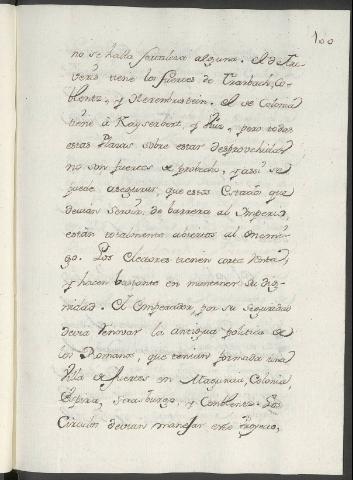 100
no se halla fortaleza alguna. El de Tre-
veris tiene los fuertes de Trarbach, Co-
blentz, y Herembrstein. El de Colonia
tiene à Kayserbert, y Huz, pero todas
estas Plazas sobre estar desprovehidas
no son fuertes de probecho, y assi se
puede asegurar, que estos Estados que
devian Servir de barrera al Imperio,
están totalmente abiertos al enemi-
go. Los Electores tienen corta Renta,
y hacen bastante en mantener su dig-
nidad. El Emperador, por su Seguridad
devia renovar la antigua politica de
los Romanos, que tenian formada una
fila de fuertes en Maguncia, Colonia,
Espira, Strasburgo, y Conblentz. Los
Circulos devian manejar este proyecto,